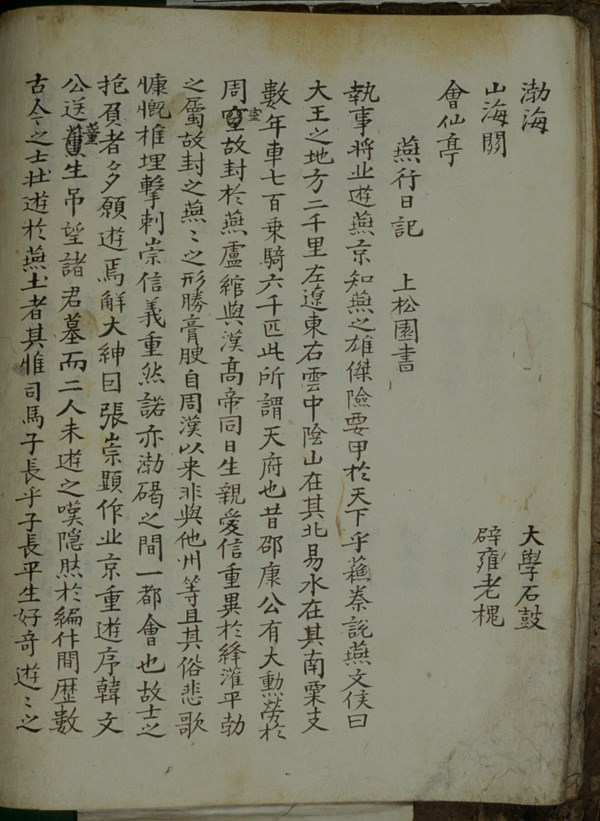 渤海 大學石鼓
山海關 辟雍老槐
會仙亭
燕行日記 上松園書
執事將北逰燕京知燕之雄傑險要甲於天下乎蘓秦說燕文侯曰
大王之地方二千里左遼東右雲中陰山在其北易水在其南粟支
數年車七百乘騎六千匹此所謂天府也昔邵康公有大勲勞於
周室故封於燕盧綰與漢高帝同日生親愛信重異於絳灌平勃
之屬故封之燕〻之形勝膏腴自周漢以来非與他州等且其俗悲歌
慷慨椎埋擊刺崇信義重然諾亦渤碣之間一都會也故士之
抱負者多願逰焉解大紳曰張崇顯作北京重逰序韓文
公送董生吊望諸君墓而二人未逰之嘆隱然於編什間歷數
古今之士壯逰於燕土者其惟司馬子長乎子長平生好奇逰〻之